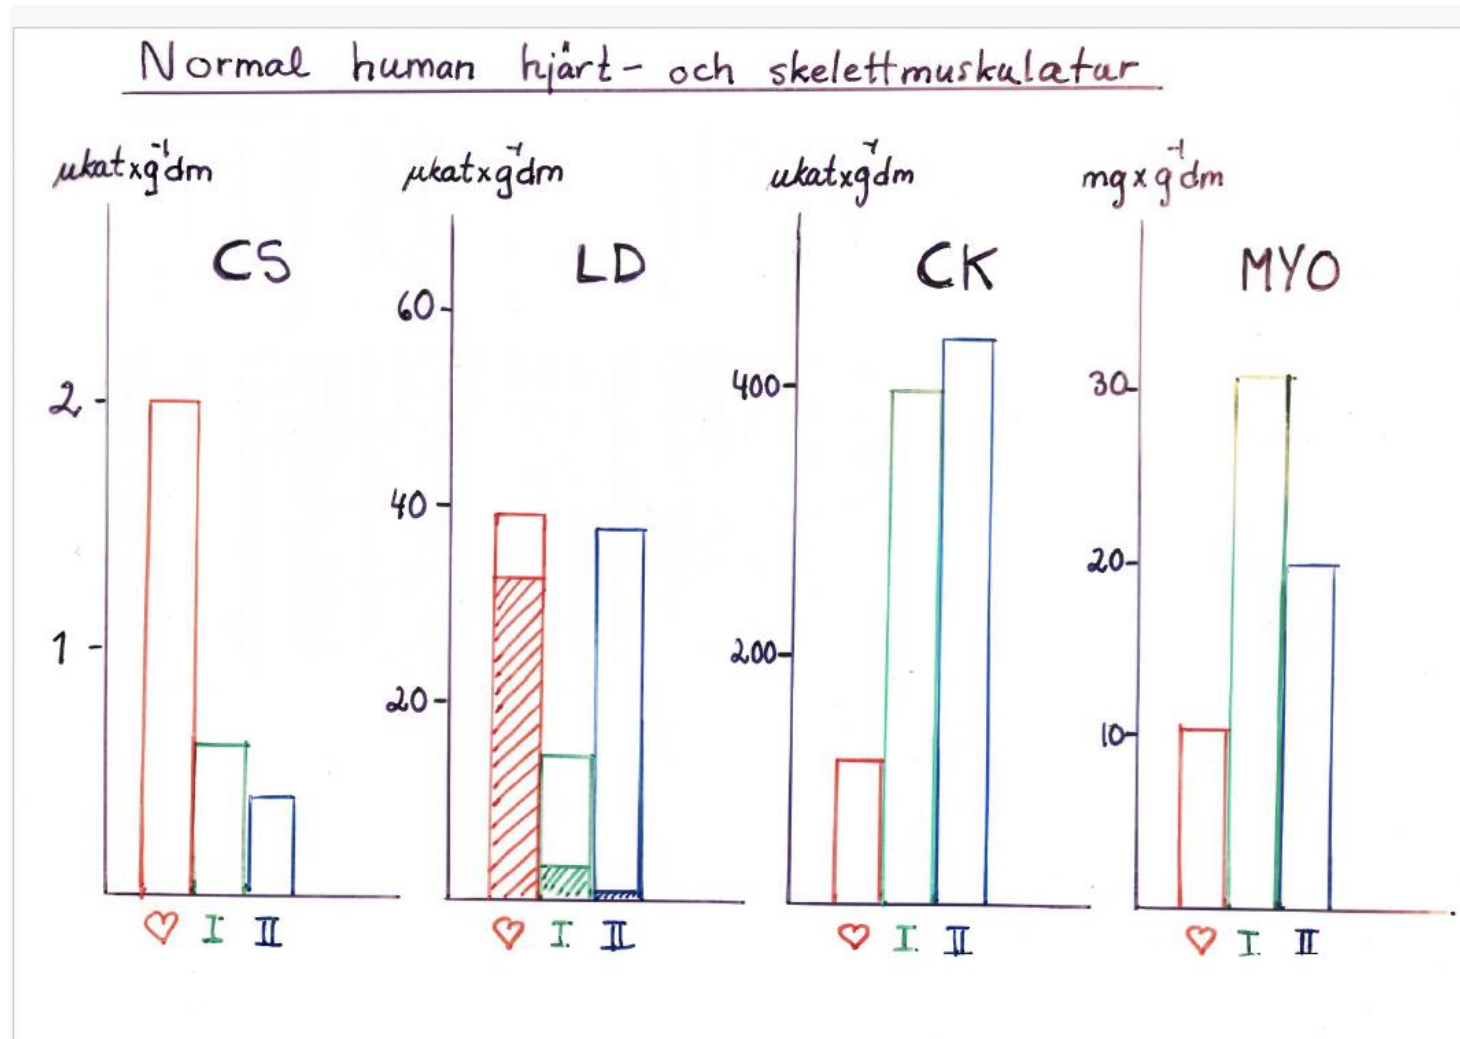 Normal human hjärt- och skelettmuskulatur
μkat×g⁻¹dm
CS
2
1
♡ I II
μkat×g⁻¹dm
LD
60
40
20
♡ I. II
μkat×g⁻¹dm
CK
400
200
♡ I. II
mg×g⁻¹dm
MYO
30
20
10
♡ I. II